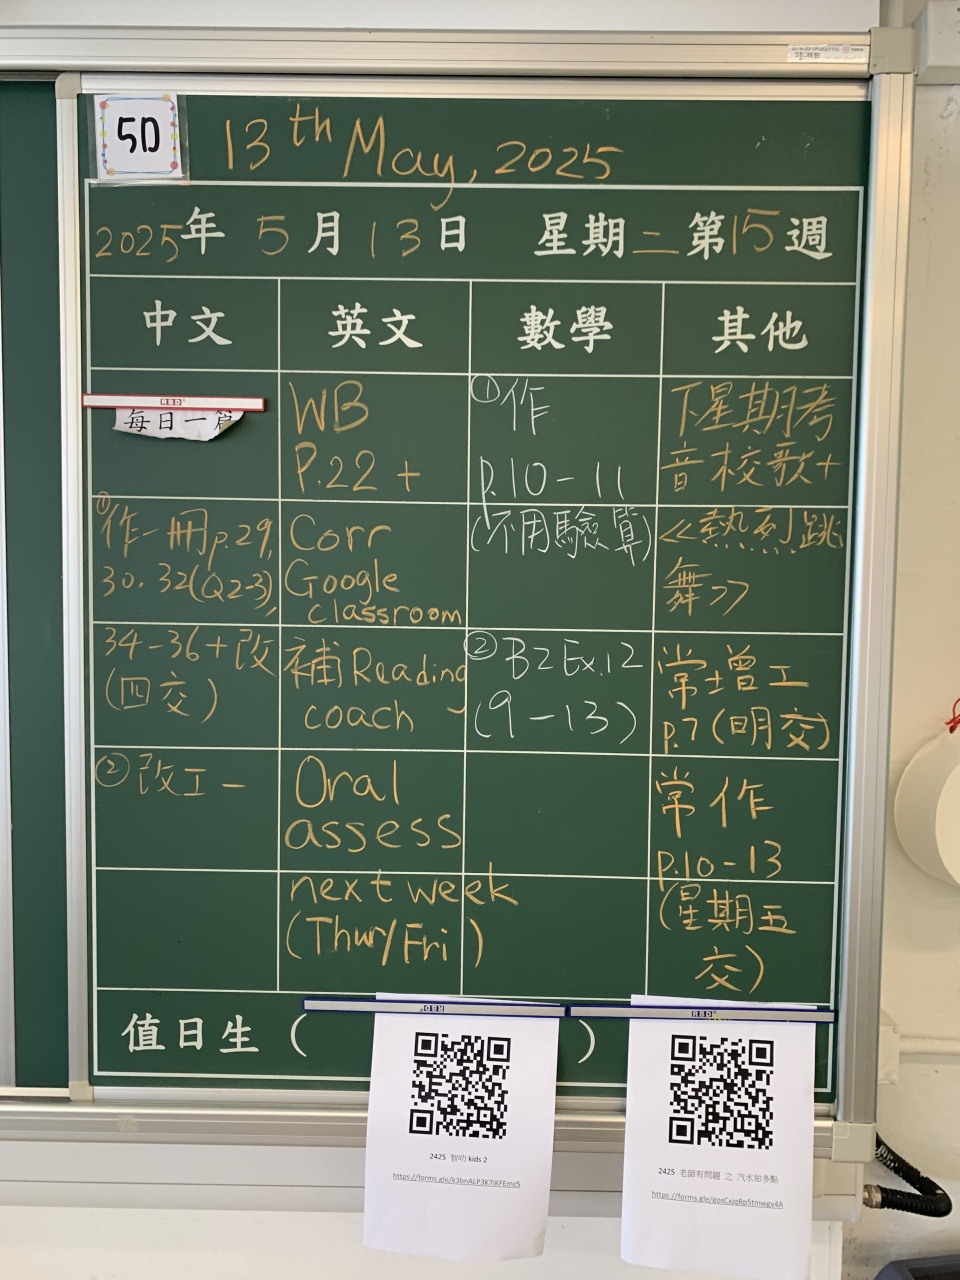 5D
13th May, 2025
2025年 5月 13日 星期二 第15週
中文
英文
數學
其他
每日一篇
①作一冊p.29,
30. 32(Q2-3),
34-36+改
(四交)
②改工一
WB
P.22 +
Corr
Google
classroom
補Reading
coach
Oral
assess
next week
(Thur/Fri)
①作
p.10-11
(不用驗算)
②B2Ex.12
(9-13)
下星期考
音校歌+
≪熱烈跳
舞≫
常增工
p.7(明交)
常作
p.10-13
(星期五
交)
值日生 ( )
RBD
RBD
RBD
2425 智叻 kids 2
https://forms.gle/k3bnALP3K7iKFEmz5
2425 老師有問題 之 汽水知多點
https://forms.gle/gosCxjqBp5tmwgv4A